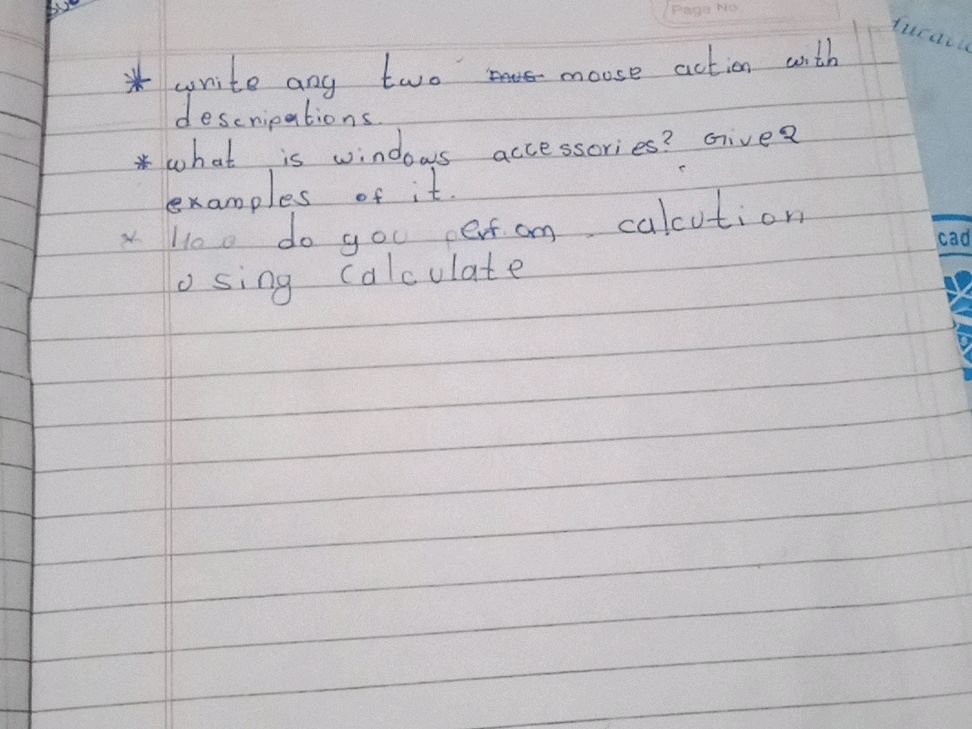 Page No
* write any two mous mouse action with
descripations.
* what is windows accessories? Give 2
examples of it.
* How do you perfom calcution
using calculate
cad